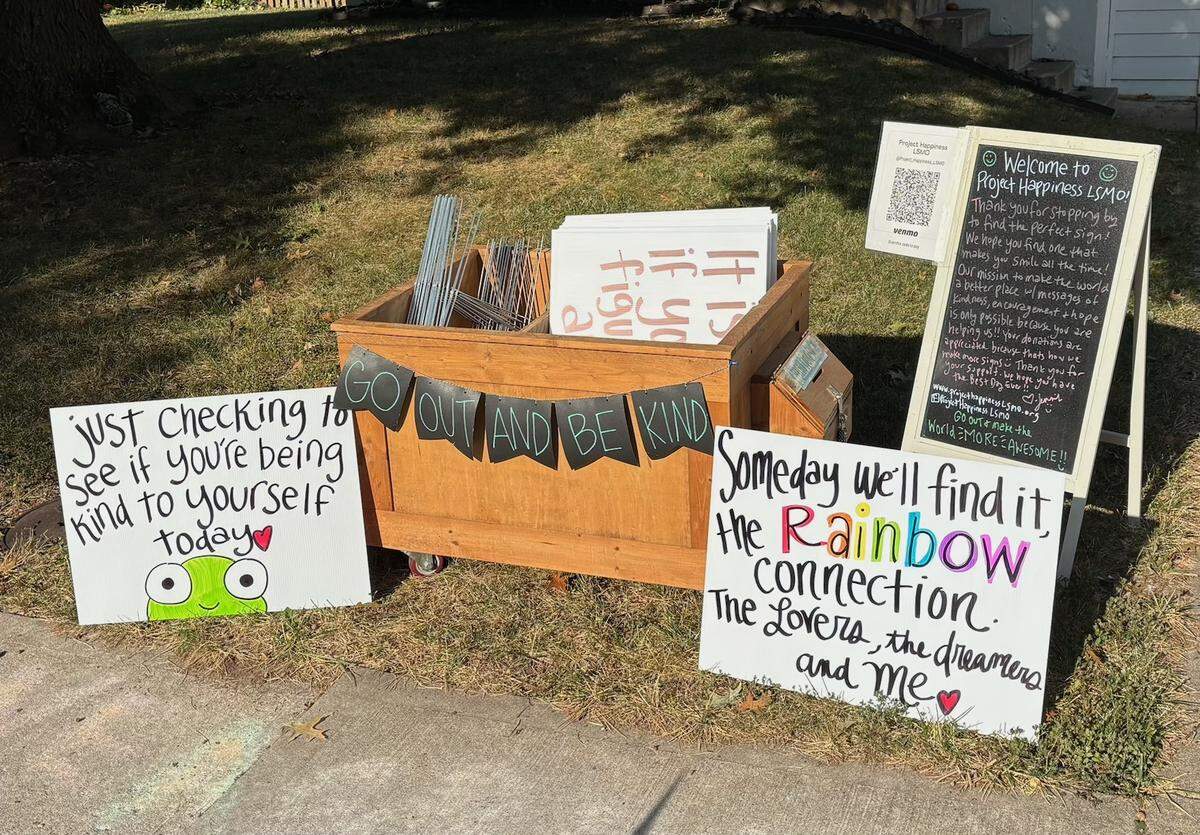 just checking to
see if you're being
kind to yourself
today
GO OUT AND BE KIND
It is
if yo
figu
a
Someday we'll find it,
the Rainbow
connection.
The Lovers, the dreamers
and me
Project Happiness
LSMO
@Project_Happiness_LSMO
venmo
Welcome to
Project Happiness LSMO!
Thank you for stopping by
to find the perfect sign!
We hope you find one that
makes you smile all the time!
Our mission to make the world
a better place w/ messages of
kindness, encouragement + hope
is only possible because you are
helping us!! Your donations are
appreciated because thats how we
make more signs Thank you for
your support. We hope you have
the Best Day Ever!!
www.projecthappinesslsmo.org
Project Happiness LSMO
GO OUT & make the
World MORE AWESOME!!